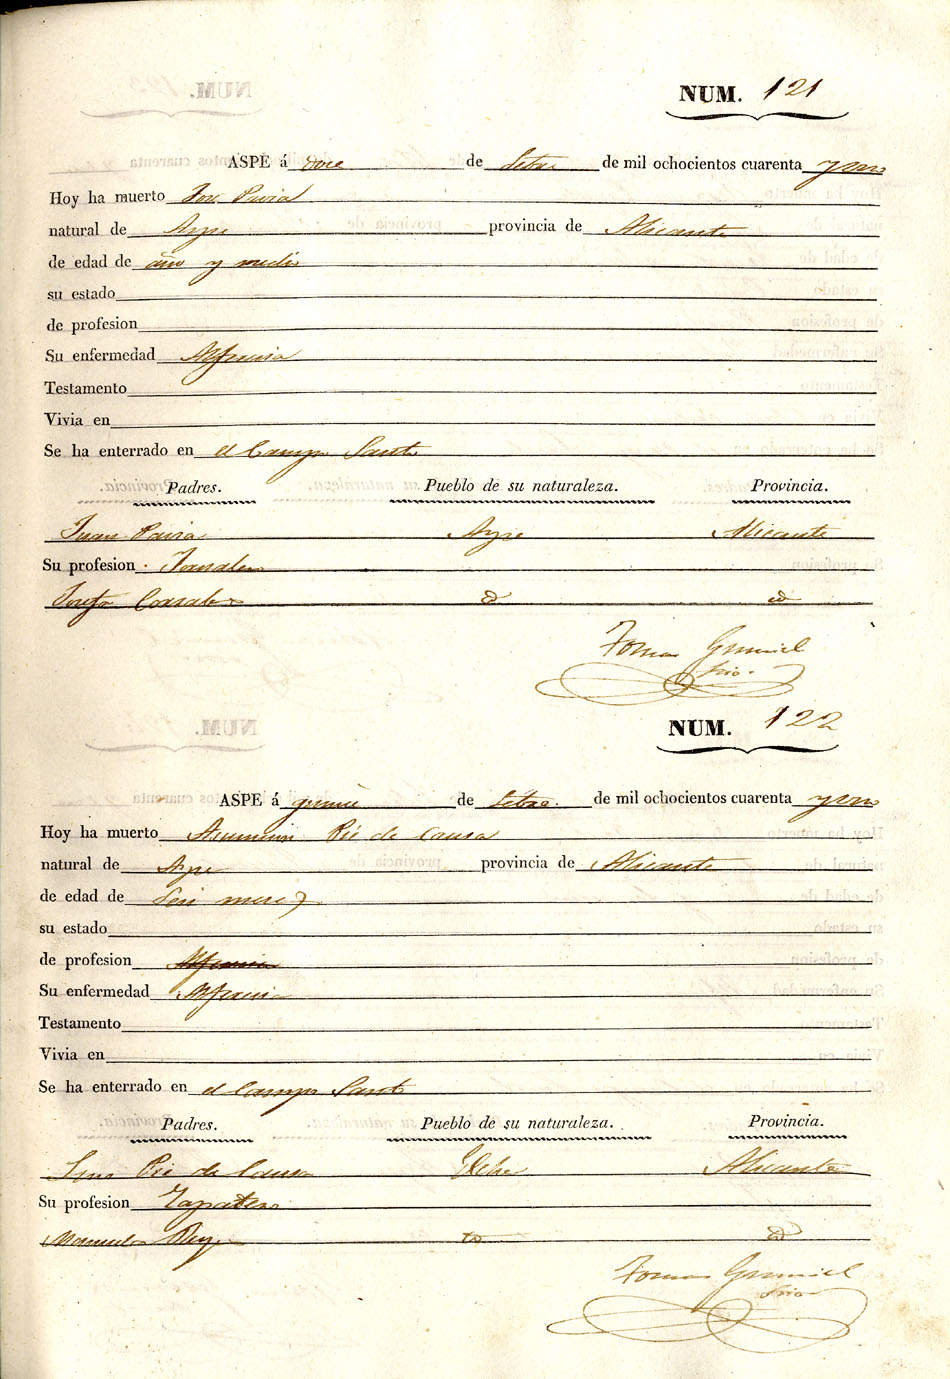 NUM. 121
ASPE á doce de Setbre de mil ochocientos cuarenta y uno
Hoy ha muerto
natural de Aspe provincia de Alicante
de edad de año y medio
su estado
de profesion
Su enfermedad Alferecia
Testamento
Vivia en
Se ha enterrado en el Campo Santo
Padres. Pueblo de su naturaleza. Provincia.
Juan Aspe Alicante
Su profesion Jornalero
Josefa id id
Tomas
Srio.
NUM. 122
ASPE á quince de Setbre. de mil ochocientos cuarenta y uno
Hoy ha muerto Asuncion Pie de Causa
natural de Aspe provincia de Alicante
de edad de Seis meses
su estado
de profesion
Su enfermedad Alferecia
Testamento
Vivia en
Se ha enterrado en el Campo Santo
Padres. Pueblo de su naturaleza. Provincia.
Pie de Causa Elche Alicante
Su profesion Zapatero
Manuela id
Tomas
Srio